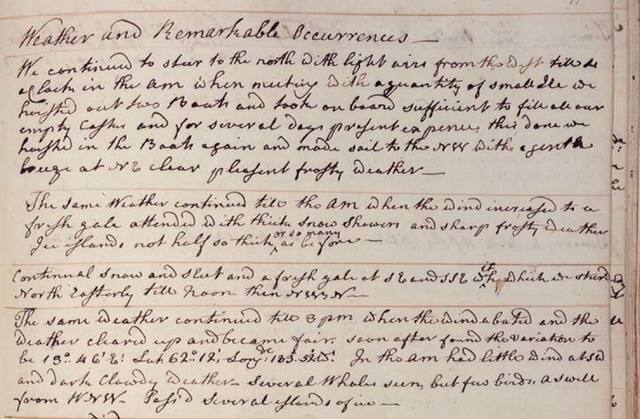 Weather and Remarkable Occurrences —
We continued to steer to the north with light airs from the West till
oClock in the AM when meeting with a quantity of small Ice we
hoisted out two Boats and took on board sufficient to fill all our
empty Casks and for several days present expence, this done we
hoisted in the Boats again and made sail to the NW with a gentle
breeze at NE clear pleasent frosty weather —
The same Weather continued till the AM when the wind increased to a
fresh gale attended with thick snow showers and sharp frosty weather
Ice islands not half so thick or so many as before —
Continual snow and sleet and a fresh gale at SE and SSE with which we steer'd
North Easterly till noon then
The same weather continued till 8 pm when the wind abated and the
weather cleared up and became fair. soon after found the variation to
be 13° 46' E: Lat 62° 12', In the AM had little wind at
and dark Clowdy weather. Several Whales seen but few birds, a swell
from WNW. Pass'd several islands of ice —